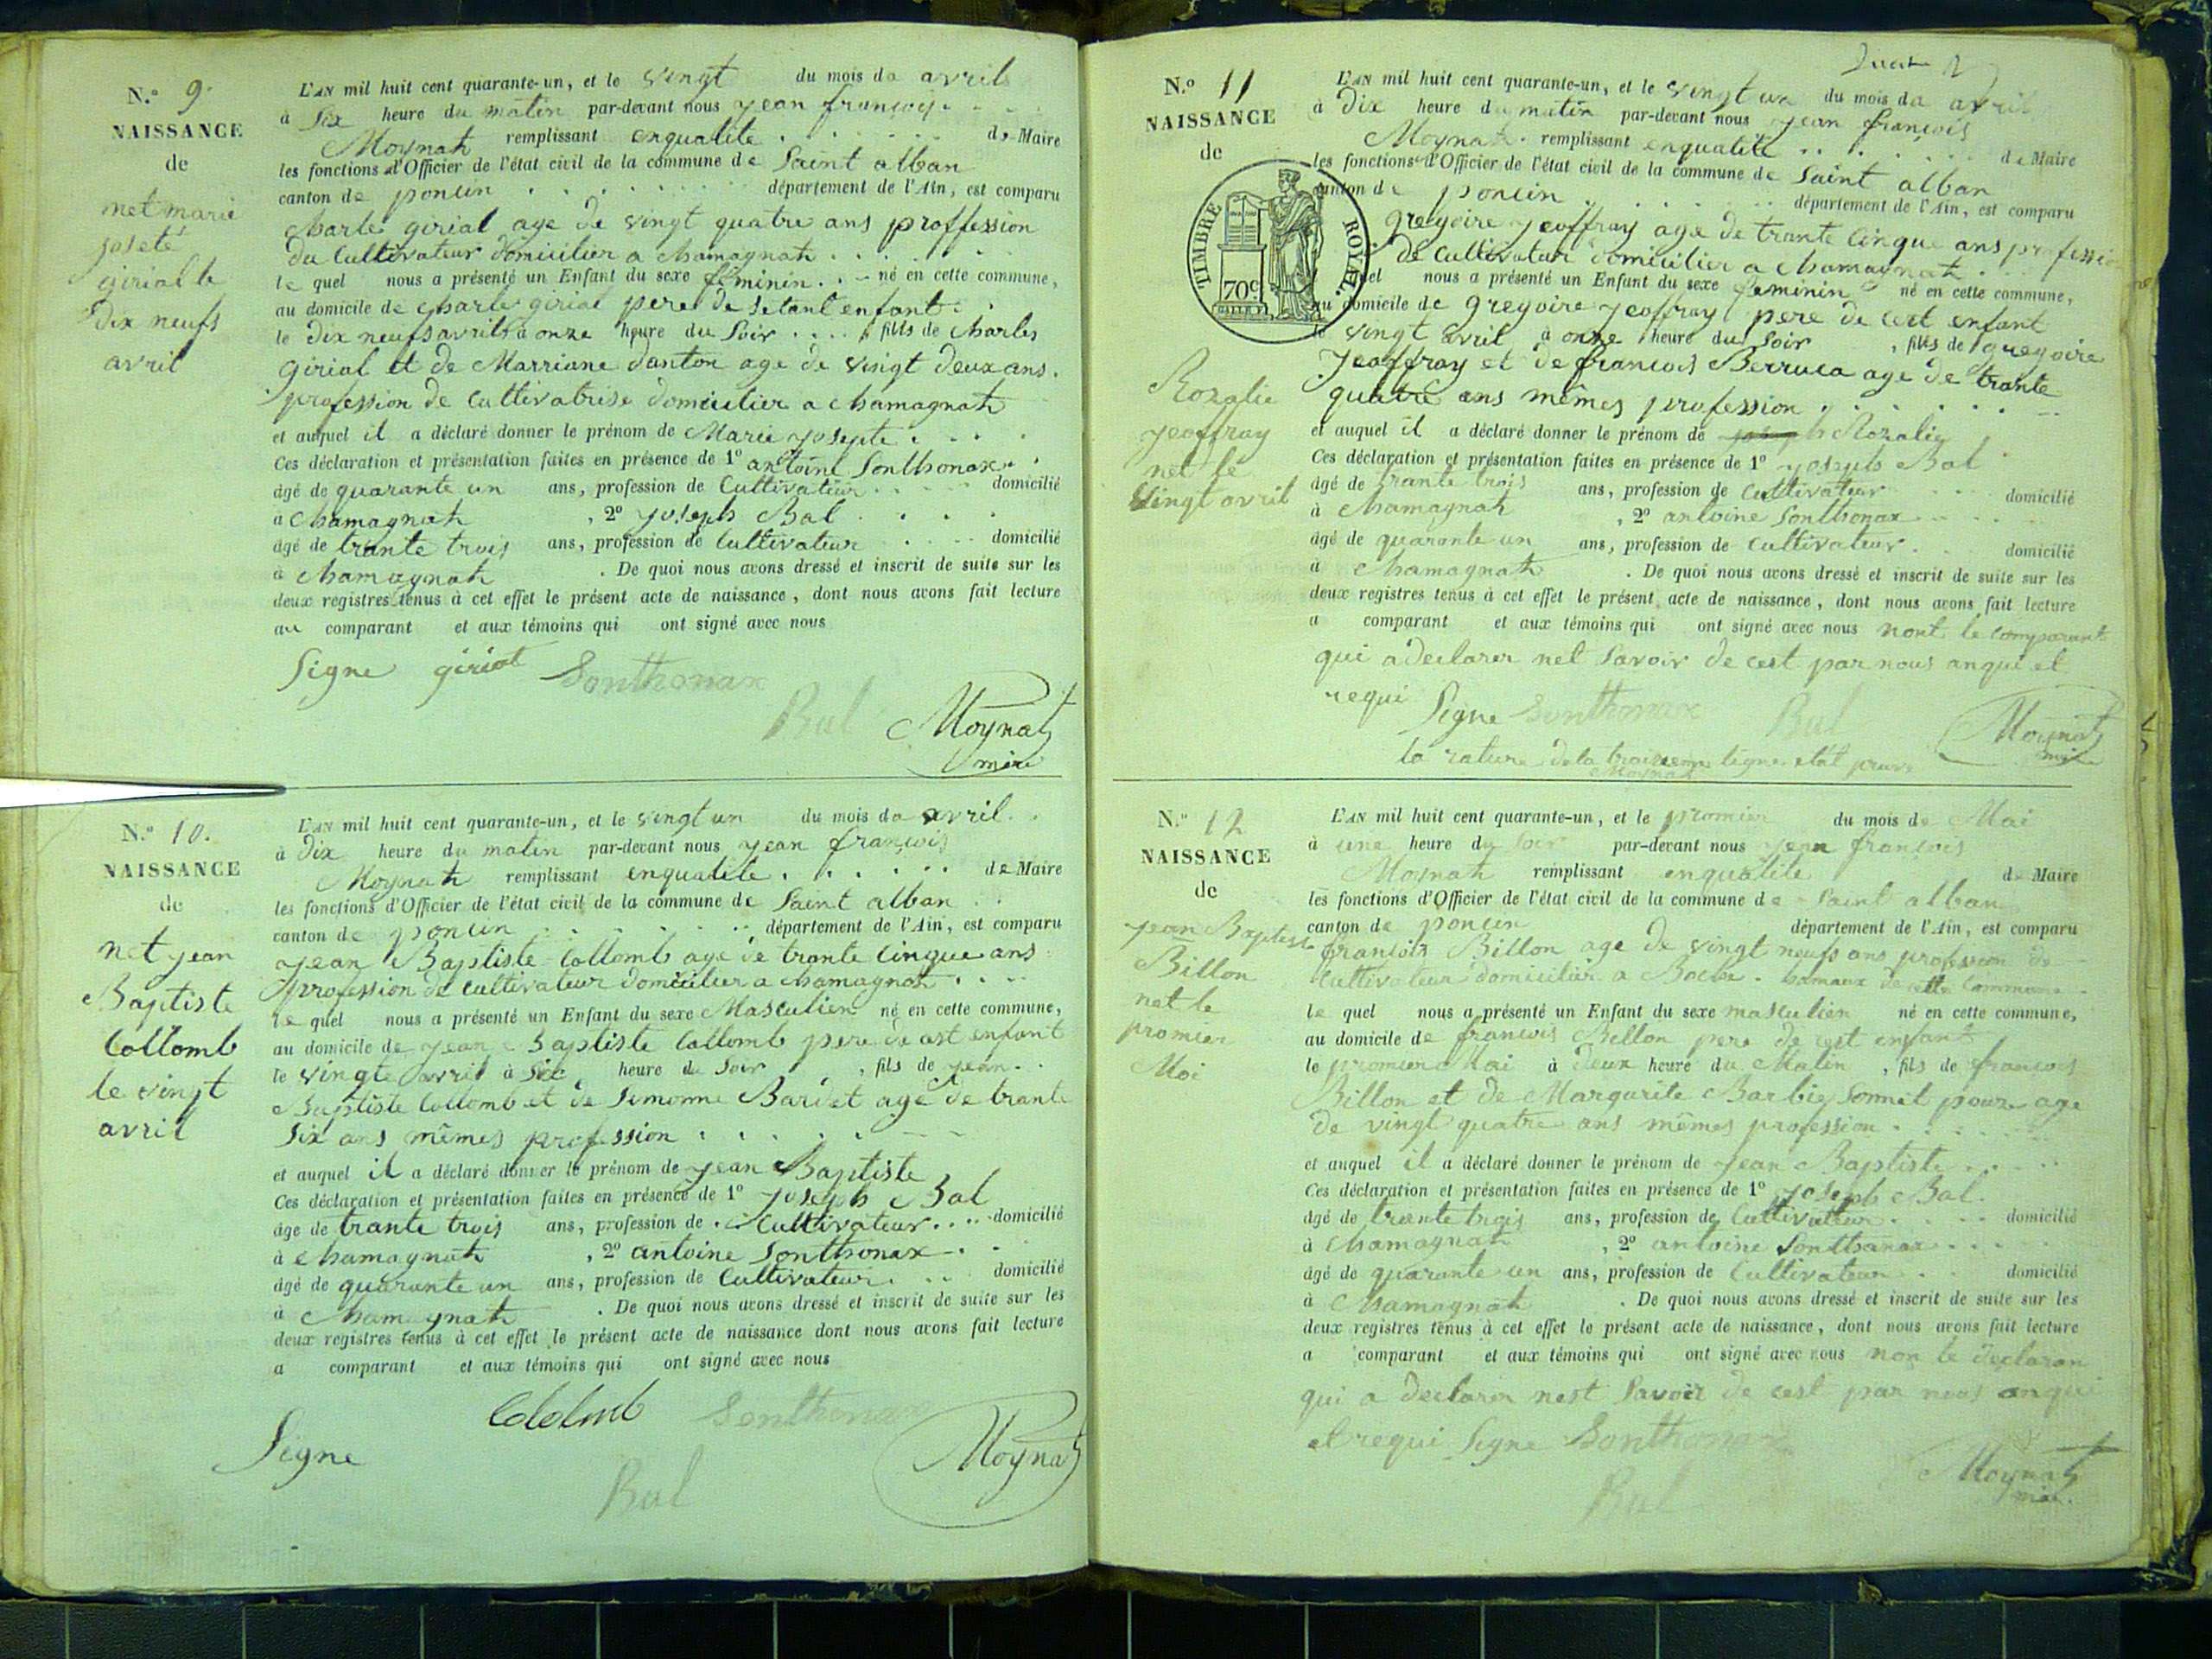 N.º 9
NAISSANCE
de
net marie
joseté
girial le
dix neufs
avril
L'AN mil huit cent quarante-un, et le vingt du mois de avril
à Six heure du matin par-devant nous jean françois
Moynat remplissant enqualité de Maire
les fonctions d'Officier de l'état civil de la commune de Saint alban
canton de poncin département de l'Ain, est comparu
Charle girial age de vingt quatre ans proffession
de Cultivateur domicilier a chamagnat
le quel nous a présenté un Enfant du sexe féminin né en cette commune,
au domicile de Charle girial pere de setant enfant
le dix neufs avril à onze heure du Soir fills de Charles
girial et de Marriane danton age de vingt deux ans.
profession de Cultivatrise domicilier a chamagnat
et auquel il a déclaré donner le prénom de Marie josepte
Ces déclaration et présentation faites en présence de 1º antoine Sonthonax
âgé de quarante un ans, profession de Cultivateur domicilié
à chamagnat, 2º joseph Bal
âgé de trante trois ans, profession de Cultivateur domicilié
à chamagnat. De quoi nous avons dressé et inscrit de suite sur les
deux registres tenus à cet effet le présent acte de naissance, dont nous avons fait lecture
au comparant et aux témoins qui ont signé avec nous
Signe girial Sonthonax
Bal Moynat
mire
N.º 10.
NAISSANCE
de
net jean
Baptiste
Collomb
le vingt
avril
L'AN mil huit cent quarante-un, et le vingt un du mois de avril
à Dix heure du matin par-devant nous jean françois
Moynat remplissant enqualité de Maire
les fonctions d'Officier de l'état civil de la commune de Saint alban
canton de poncin département de l'Ain, est comparu
jean Baptiste Collomb age de trante cinque ans
profession de cultivateur domicilier a chamagnat
le quel nous a présenté un Enfant du sexe Masculien né en cette commune,
au domicile de jean Baptiste Collomb pere de ast enfant
le vingte avril à Six heure du Soir, fils de jean
Baptiste Collomb et de Simonne Bardet age de trante
Six ans mêmes profession
et auquel il a déclaré donner le prénom de jean Baptiste
Ces déclaration et présentation faites en présence de 1º joseph Bal
âgé de trante trois ans, profession de Cultivateur domicilié
à chamagnat, 2º antoine Sonthonax
âgé de quarante un ans, profession de Cultivateur domicilié
à Chamagnat. De quoi nous avons dressé et inscrit de suite sur les
deux registres tenus à cet effet le présent acte de naissance dont nous avons fait lecture
a comparant et aux témoins qui ont signé avec nous
Signe Cololmb Sonthonax
Bal Moynat
N.º 11
NAISSANCE
de
TIMBRE ROYAL.
70c
Rozalie
jeoffray
net le
vingt avril
L'AN mil huit cent quarante-un, et le vingt un du mois de avril
à Dix heure du matin par-devant nous jean françois
Moynat remplissant enqualité de Maire
les fonctions d'Officier de l'état civil de la commune de Saint alban
canton de poncin département de l'Ain, est comparu
gregoire jeoffray age de trante cinque ans profession
de cultivateur domicilier a chamagnat
le quel nous a présenté un Enfant du sexe feminin né en cette commune,
au domicile de gregoire jeoffray pere de cest enfant
le vingt avril à onze heure du Soir, fills de gregoire
jeoffray et de francois Berruca age de trante
quatre ans mêmes profession
et auquel il a déclaré donner le prénom de Rozalie
Ces déclaration et présentation faites en présence de 1º joseph Bal
âgé de trante trois ans, profession de Cultivateur domicilié
à chamagnat, 2º antoine Sonthonax
âgé de quarante un ans, profession de Cultivateur domicilié
à chamagnat. De quoi nous avons dressé et inscrit de suite sur les
deux registres tenus à cet effet le présent acte de naissance, dont nous avons fait lecture
a comparant et aux témoins qui ont signé avec nous nont le comparant
qui a declarer net Savoir de cest par nous anqui et
requi Signe Sonthonax Bal Moynat
la rature de la traizieme ligne
Moynat
N.º 12
NAISSANCE
de
jean Baptiste
Billon
net le
promier
Mai
L'AN mil huit cent quarante-un, et le promier du mois de Mai
à une heure du Soir par-devant nous jean francois
Moynat remplissant enqualité de Maire
les fonctions d'Officier de l'état civil de la commune de Saint alban
canton de poncin département de l'Ain, est comparu
francois Billon age de vingt neufs ans profession de
Cultivateur domicilier a hamaux de cette Commune
le quel nous a présenté un Enfant du sexe masculien né en cette commune,
au domicile de francois Billon pere de cest enfant
le promier Mai à deux heure du Matin, fils de francois
Billon et de Margurite Barbie age
de vingt quatre ans mêmes profession
et auquel il a déclaré donner le prénom de jean Baptiste
Ces déclaration et présentation faites en présence de 1º joseph Bal
âgé de trante trois ans, profession de Cultivateur domicilié
à Chamagnat, 2º antoine Sonthonax
âgé de quarante un ans, profession de Cultivateur domicilié
à Chamagnat. De quoi nous avons dressé et inscrit de suite sur les
deux registres tenus à cet effet le présent acte de naissance, dont nous avons fait lecture
a comparant et aux témoins qui ont signé avec nous non le declaran
qui a declarer nest Savoir de cest par nous anqui
et requi Signe Sonthonax
Bal Moynat